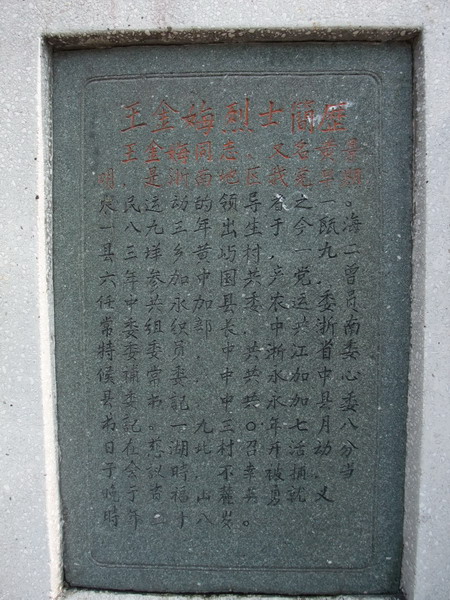 王金梅烈士簡歷
王金梅同志，又名黄景
明，是浙南地区我党早期
農民运動的领导者之一。
一八九三年出生于今瓯海
县三垟乡黄屿村，一九二
六年参加中国共产党，曾
任中共永加县委农运委员
常委组织部长、中共浙南
特委委员，中共浙江省委
候補委员，中共永加中心
县委常委，中共永加县委
书記。一九三〇年七月八
日在湖北村召开活动分
子会议時，不幸被捕，当
晚于吉福山麓英勇就义
時年二十八岁。